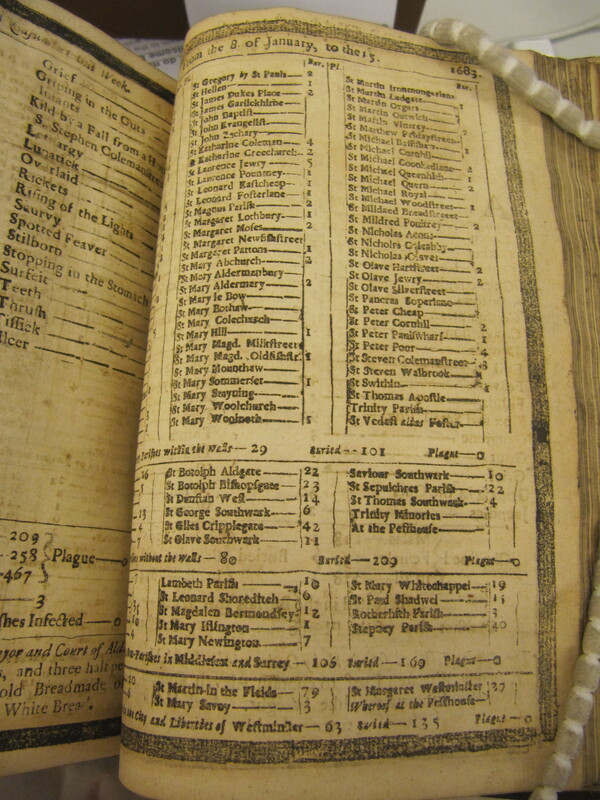 this Week.
Grief
Griping in the Guts
Infants
Kild by a Fall from a H
S. Stephen Coleman
Lunatick
Overlaid
Rickets
Rising of the Lights
Scurvy
Spotted Feaver
Stilborn
Stopping in the Stomach
Surfeit
Teeth
Thrush
Tissick
209
258 Plague — 0
467
3
shes Infected — 0
yor and Court of Ald
s, and three half pe
White Brea
from the 8. of January, to the 15. 1683.
Bur. Pl.
St Gregory by St Pauls — 2
St Hellen — 1
St James Dukes Place — 2
St James Garlickhithe
St John Baptist
St John Evangelist
St John Zachary
St Katharine Coleman — 4
St Katharine Creechurch — 2
St Laurence Jewry — 5
St Laurence Pountney — 1
St Leonard Eastcheap — 1
St Leonard Fosterlane — 1
St Magnus Parish — 2
St Margaret Lothbury — 1
St Margaret Moses — 2
St Margaret Newfishstreet
St Margaret Pattons — 1
St Mary Abchurch — 2
St Mary Aldermanbury
St Mary Aldermary — 2
St Mary le Bow
St Mary Bothaw
St Mary Colechurch
St Mary Hill — 1
St Mary Magd. Milkstreet
St Mary Magd. Oldfishstr. 1
St Mary Mounthaw
St Mary Sommerset — 1
St Mary Stayning
St Mary Woolchurch
St Mary Woolnoth
Bur.
St Martin Ironmongerlane
St Martin Ludgate
St Martin Orgars
St Martin Outwich
St Martin Vintrey
St Matthew Fridaystreet
St Michael Bassishaw
St Michael Cornhil
St Michael Crookedlane — 2
St Michael Queenhith — 1
St Michael Quern — 2
St Michael Royal
St Michael Woodstreet — 1
St Mildred Breadstreet
St Mildred Poultrey — 2
St Nicholas Acons
St Nicholas Coleabby
St Nicholas Olaves
St Olave Hartstreet — 2
St Olave Jewry — 2
St Olave Silverstreet
St Pancras Soperlane
St Peter Cheap
St Peter Cornhil — 2
St Peter Paulswharf — 1
St Peter Poor — 4
St Steven Colemanstreet — 3
St Steven Walbrook
St Swithin
St Thomas Apostle
Trinity Parish
St Vedast alias Foster
Parishes within the Walls — 29 Buried — 101 Plague — 0
St Botolph Aldgate — 22
St Botolph Bishopsgate — 23
St Dunstan West — 14
St George Southwark — 6
St Giles Cripplegate — 42
St Olave Southwark — 11
Saviour Southwark — 10
St Sepulchres Parish — 22
St Thomas Southwark — 4
Trinity Minories
At the Pesthouse
without the Walls — 80 Buried — 209 Plague — 0
Lambeth Parish — 10
St Leonard Shoreditch — 6
St Magdalen Bermondsey — 12
St Mary Islington — 1
St Mary Newington — 7
St Mary Whitechappel — 19
St Paul Shadwel
Rotherhith Parish — 3
Stepney Parish — 40
Parishes in Middlesex and Surrey — 106 Buried — 169 Plague — 0
St Martin in the Fields — 79
St Mary Savoy — 3
St Margaret Westminster 27
Whereof at the Pesthouse
the City and Liberties of Westminster — 63 Buried — 135 Plague — 0